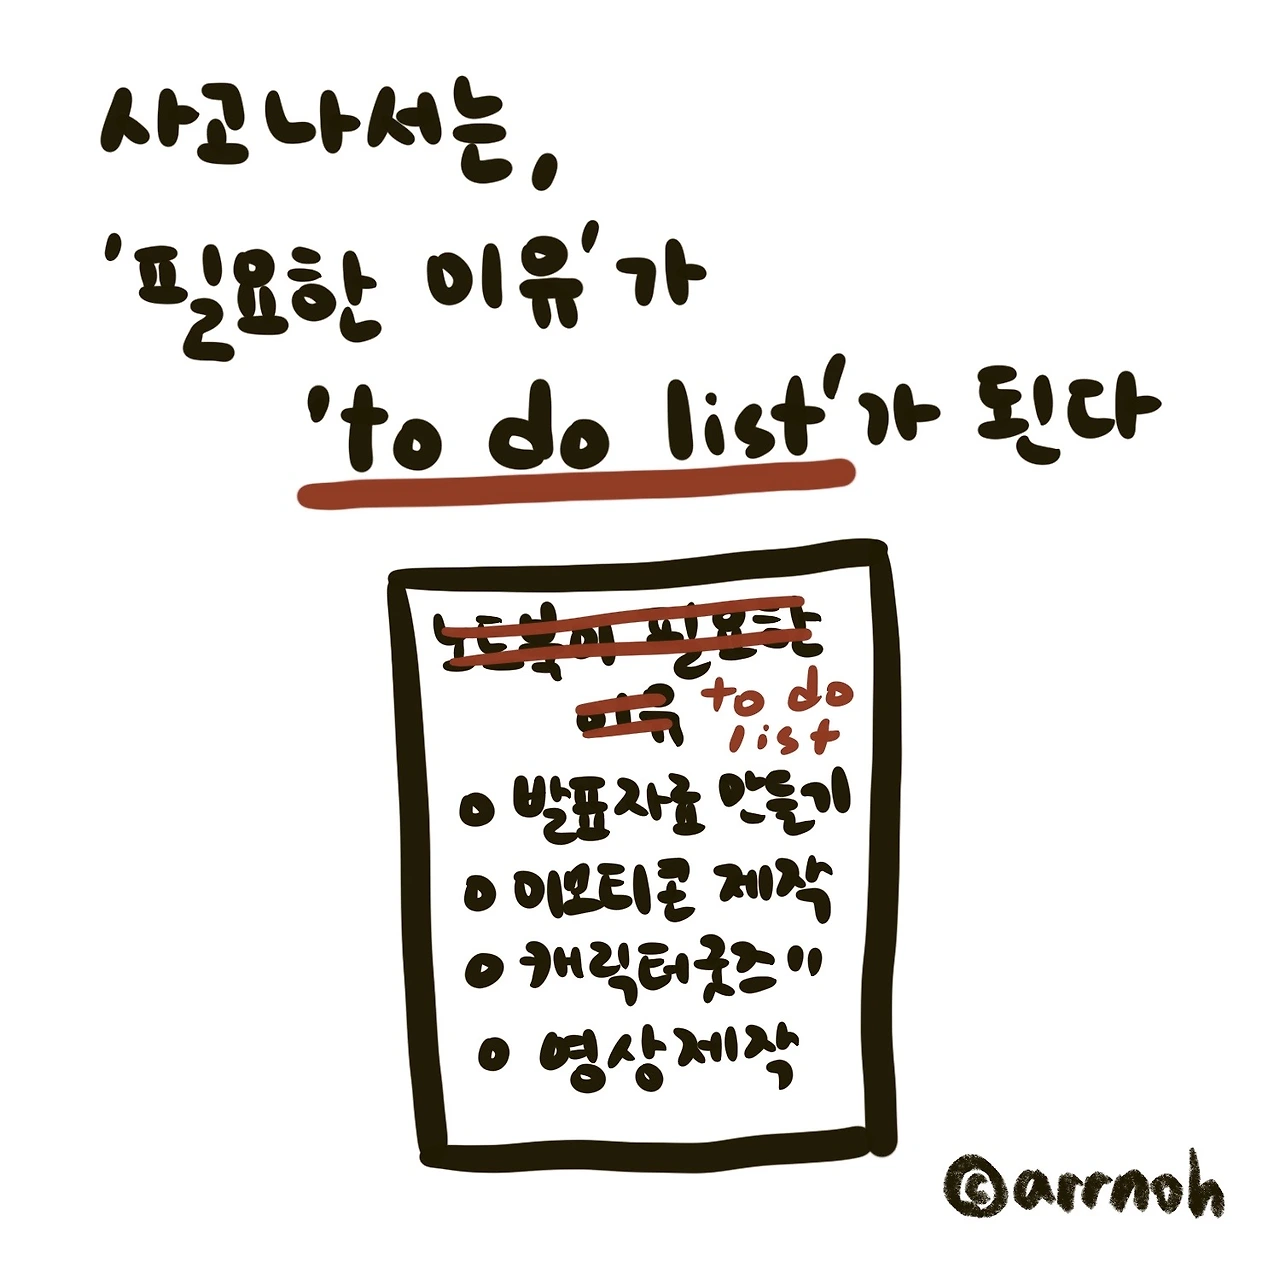 사고나서는,
'필요한 이유'가
'to do list'가 된다
노트북이 필요한
이유 to do
list
o 발표자료 만들기
o 이모티콘 제작
o 캐릭터굿즈 "
o 영상제작
©arrnoh